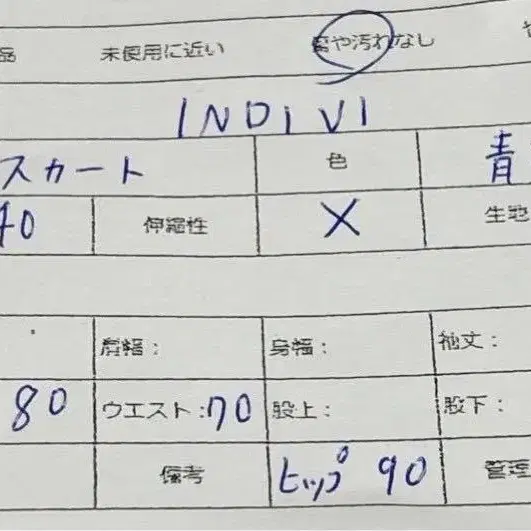 品 未使用に近い 傷や汚れなし
INDIVI
スカート 色 青
40 伸縮性 × 生地
肩幅： 身幅： 袖丈：
80 ウエスト：70 股上： 股下：
備考 ヒップ 90 管理